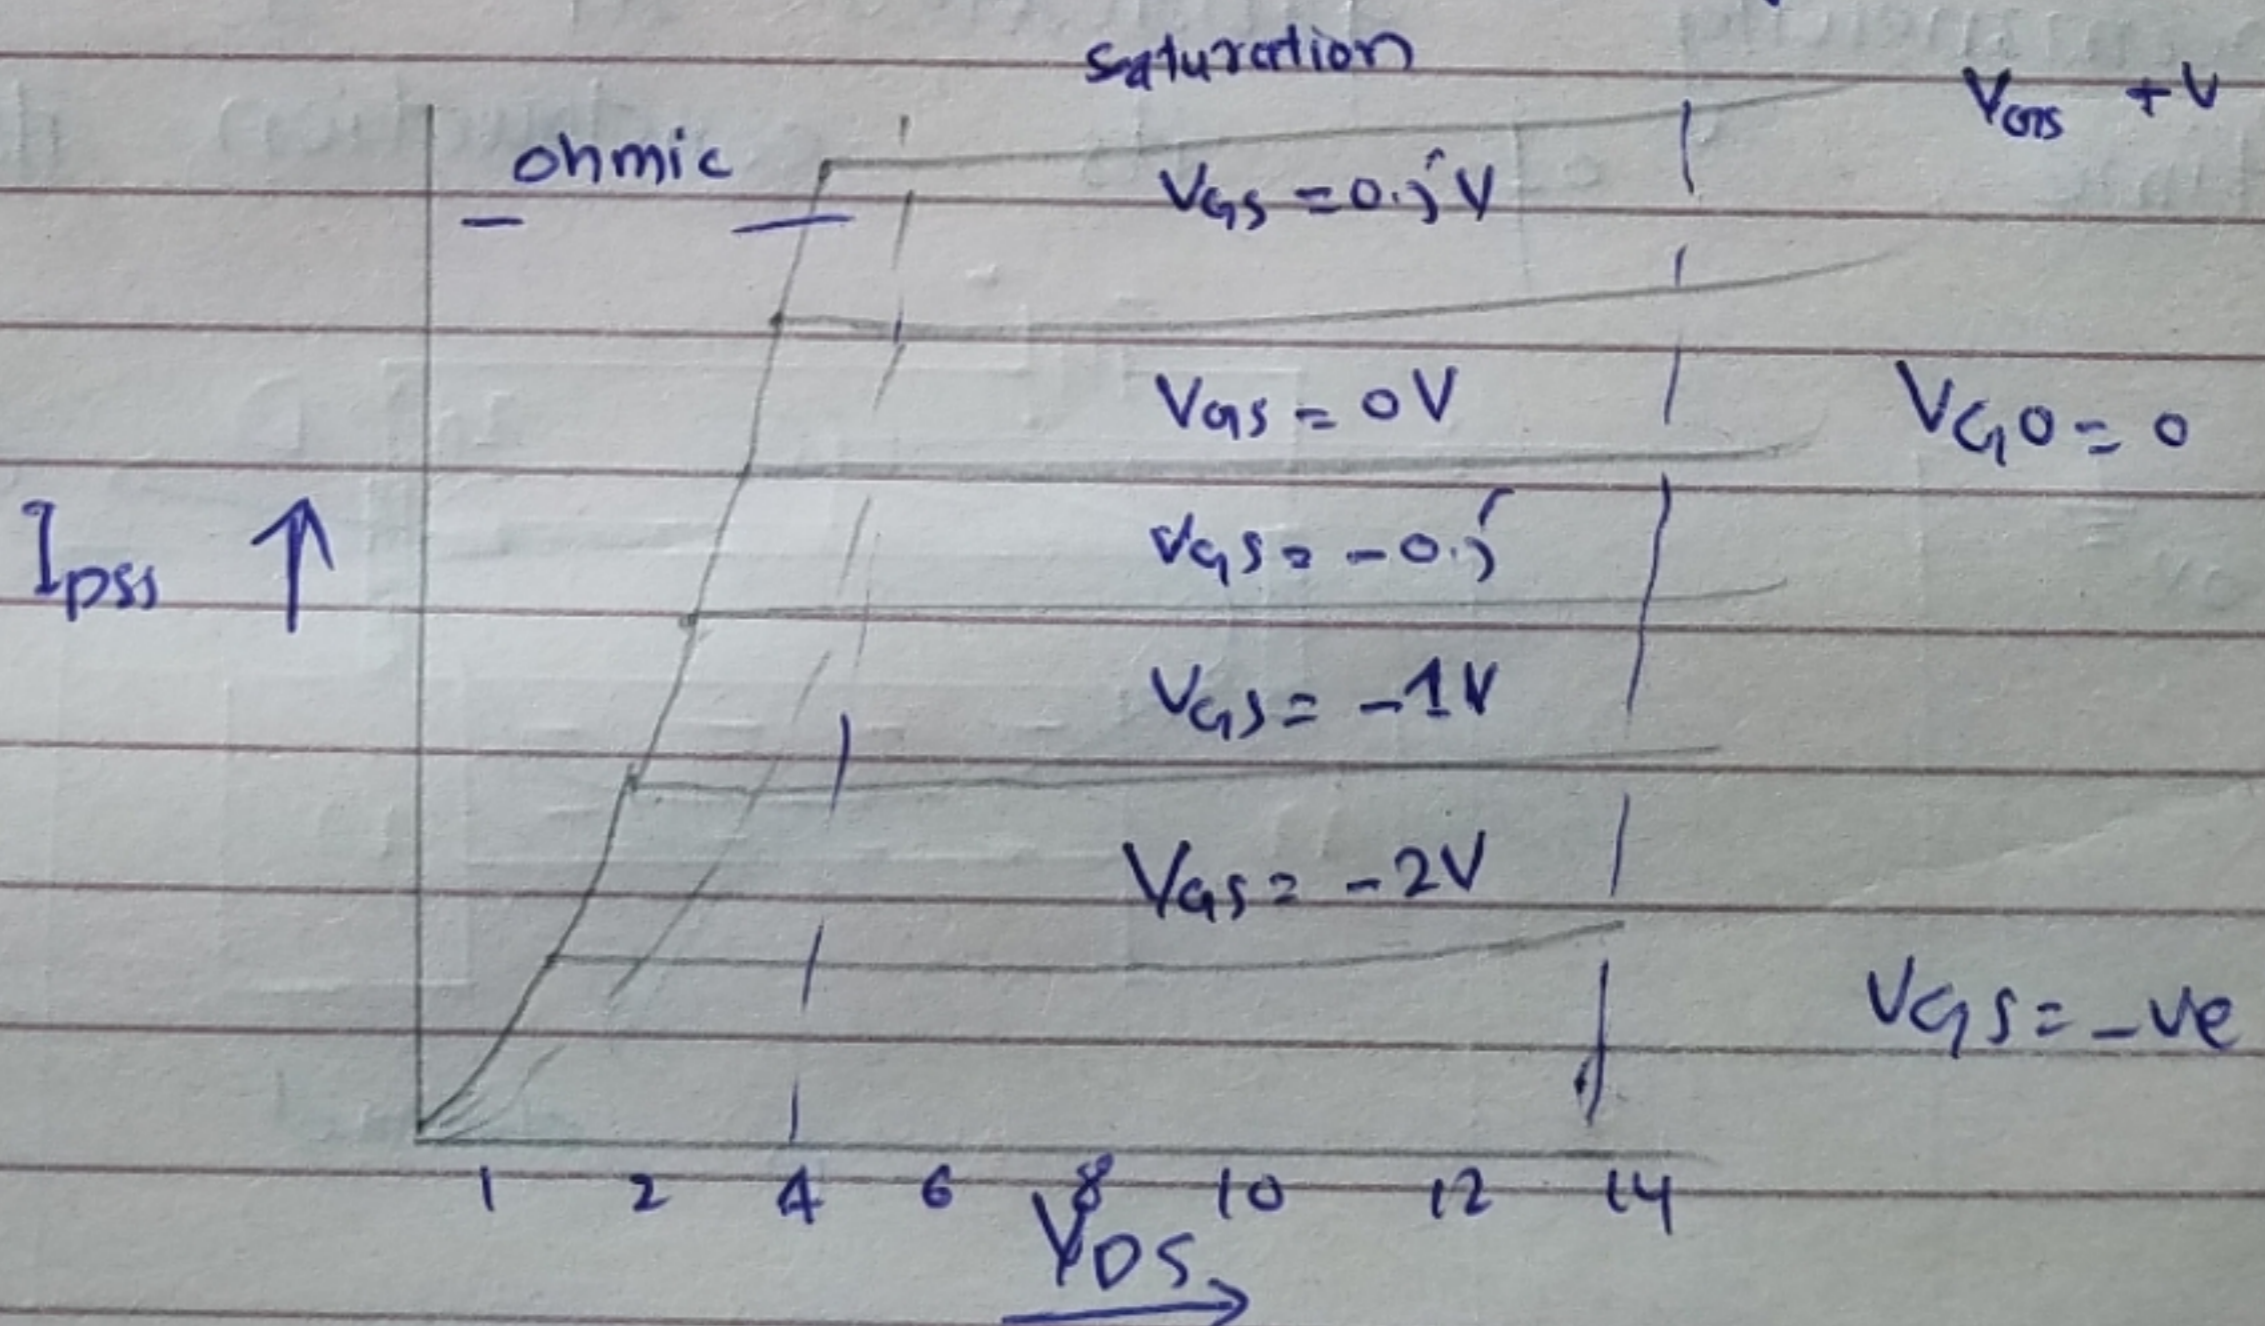 saturation
VGS +V
ohmic
VGS = 0.5V
VGS = 0V
VG0 = 0
IDSS ↑
VGS = -0.5
VGS = -1V
VGS = -2V
VGS = -ve
1 2 4 6 8 10 12 14
VDS →